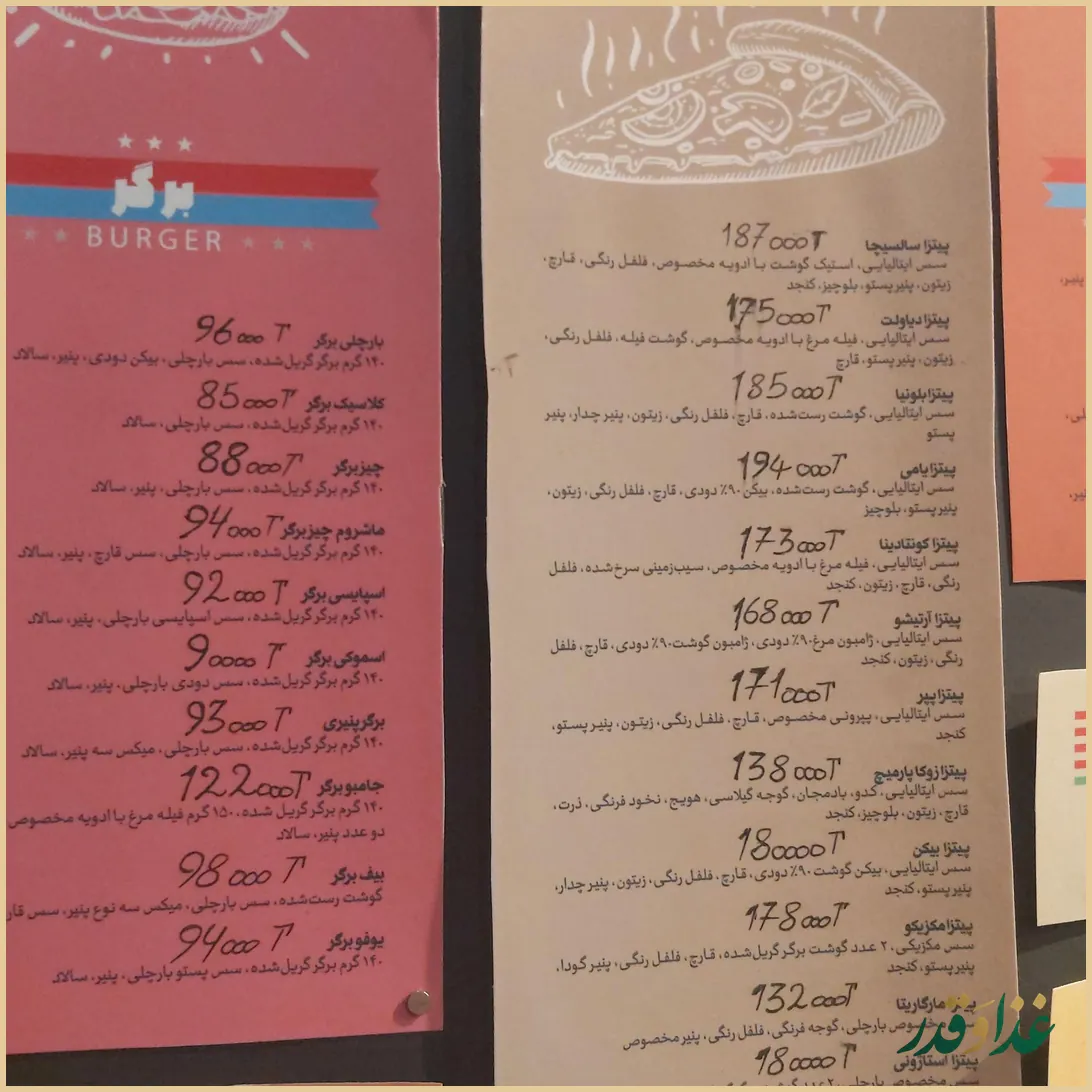 برگر
BURGER
بارچلی برگر 96000 T
۱۴۰ گرم برگر گریل‌شده، سس بارچلی، بیکن دودی، پنیر، سالاد
کلاسیک برگر 85000T
۱۴۰ گرم برگر گریل‌شده، سس بارچلی، سالاد
چیزبرگر 88000T
۱۴۰ گرم برگر گریل‌شده، سس بارچلی، پنیر، سالاد
ماشروم چیزبرگر 94000T
۱۴۰ گرم برگر گریل‌شده، سس بارچلی، سس قارچ، پنیر، سالاد
اسپایسی برگر 92000 T
۱۴۰ گرم برگر گریل‌شده، سس اسپایسی بارچلی، پنیر، سالاد
اسموکی برگر 90000 T
۱۴۰ گرم برگر گریل‌شده، سس دودی بارچلی، پنیر، سالاد
برگر پنیری 93000 T
۱۴۰ گرم برگر گریل‌شده، سس بارچلی، میکس سه پنیر، سالاد
جامبو برگر 122000T
۱۴۰ گرم برگر گریل شده، ۱۵۰ گرم فیله مرغ با ادویه مخصوص
دو عدد پنیر، سالاد
بیف برگر 98000 T
گوشت رست‌شده، سس بارچلی، میکس سه نوع پنیر، سس
یوفو برگر 94000 T
۱۴۰ گرم برگر گریل‌شده، سس پستو بارچلی، پنیر، سالاد
پیتزا سالسیچا 187000T
سس ایتالیایی، استیک گوشت با ادویه مخصوص، فلفل رنگی، قارچ،
زیتون، پنیر پستو، بلوچیز، کنجد
پیتزا دیاولت 175000T
سس ایتالیایی، فیله مرغ با ادویه مخصوص، گوشت فیله، فلفل رنگی،
زیتون، پنیر پستو، قارچ
پیتزا بلونیا 185000T
سس ایتالیایی، گوشت رست‌شده، قارچ، فلفل رنگی، زیتون، پنیر چدار، پنیر
پستو
پیتزا بامی 194000T
سس ایتالیایی، گوشت رست‌شده، بیکن ۹۰٪ دودی، قارچ، فلفل رنگی، زیتون،
پنیر پستو، بلوچیز
پیتزا کونتادینا 173000T
سس ایتالیایی، فیله مرغ با ادویه مخصوص، سیب‌زمینی سرخ‌شده، فلفل
رنگی، قارچ، زیتون، کنجد
پیتزا آرتیشو 168000 T
سس ایتالیایی، ژامبون مرغ ۹۰٪ دودی، ژامبون گوشت ۹۰٪ دودی، قارچ، فلفل
رنگی، زیتون، کنجد
پیتزا پپر 171000T
سس ایتالیایی، پپرونی مخصوص، قارچ، فلفل رنگی، زیتون، پنیر پستو،
کنجد
پیتزا زوکا پارمیچ 138000T
سس ایتالیایی، کدو، بادمجان، گوجه گیلاسی، هویج، نخود فرنگی، ذرت،
قارچ، زیتون، بلوچیز، کنجد
پیتزا بیکن 180000T
سس ایتالیایی، بیکن گوشت ۹۰٪ دودی، قارچ، فلفل رنگی، زیتون، پنیر چدار،
پنیر پستو، کنجد
پیتزا مکزیکو 178000T
سس مکزیکی، ۲ عدد گوشت برگر گریل‌شده، قارچ، فلفل رنگی، پنیر گودا،
پنیر پستو، کنجد
پیتزا مارگاریتا 132000T
مخصوص بارچلی، گوجه فرنگی، فلفل رنگی، پنیر مخصوص
پیتزا استازونی 180000T
سس مخصوص بارچلی، ۲ عدد
غذا و قدر